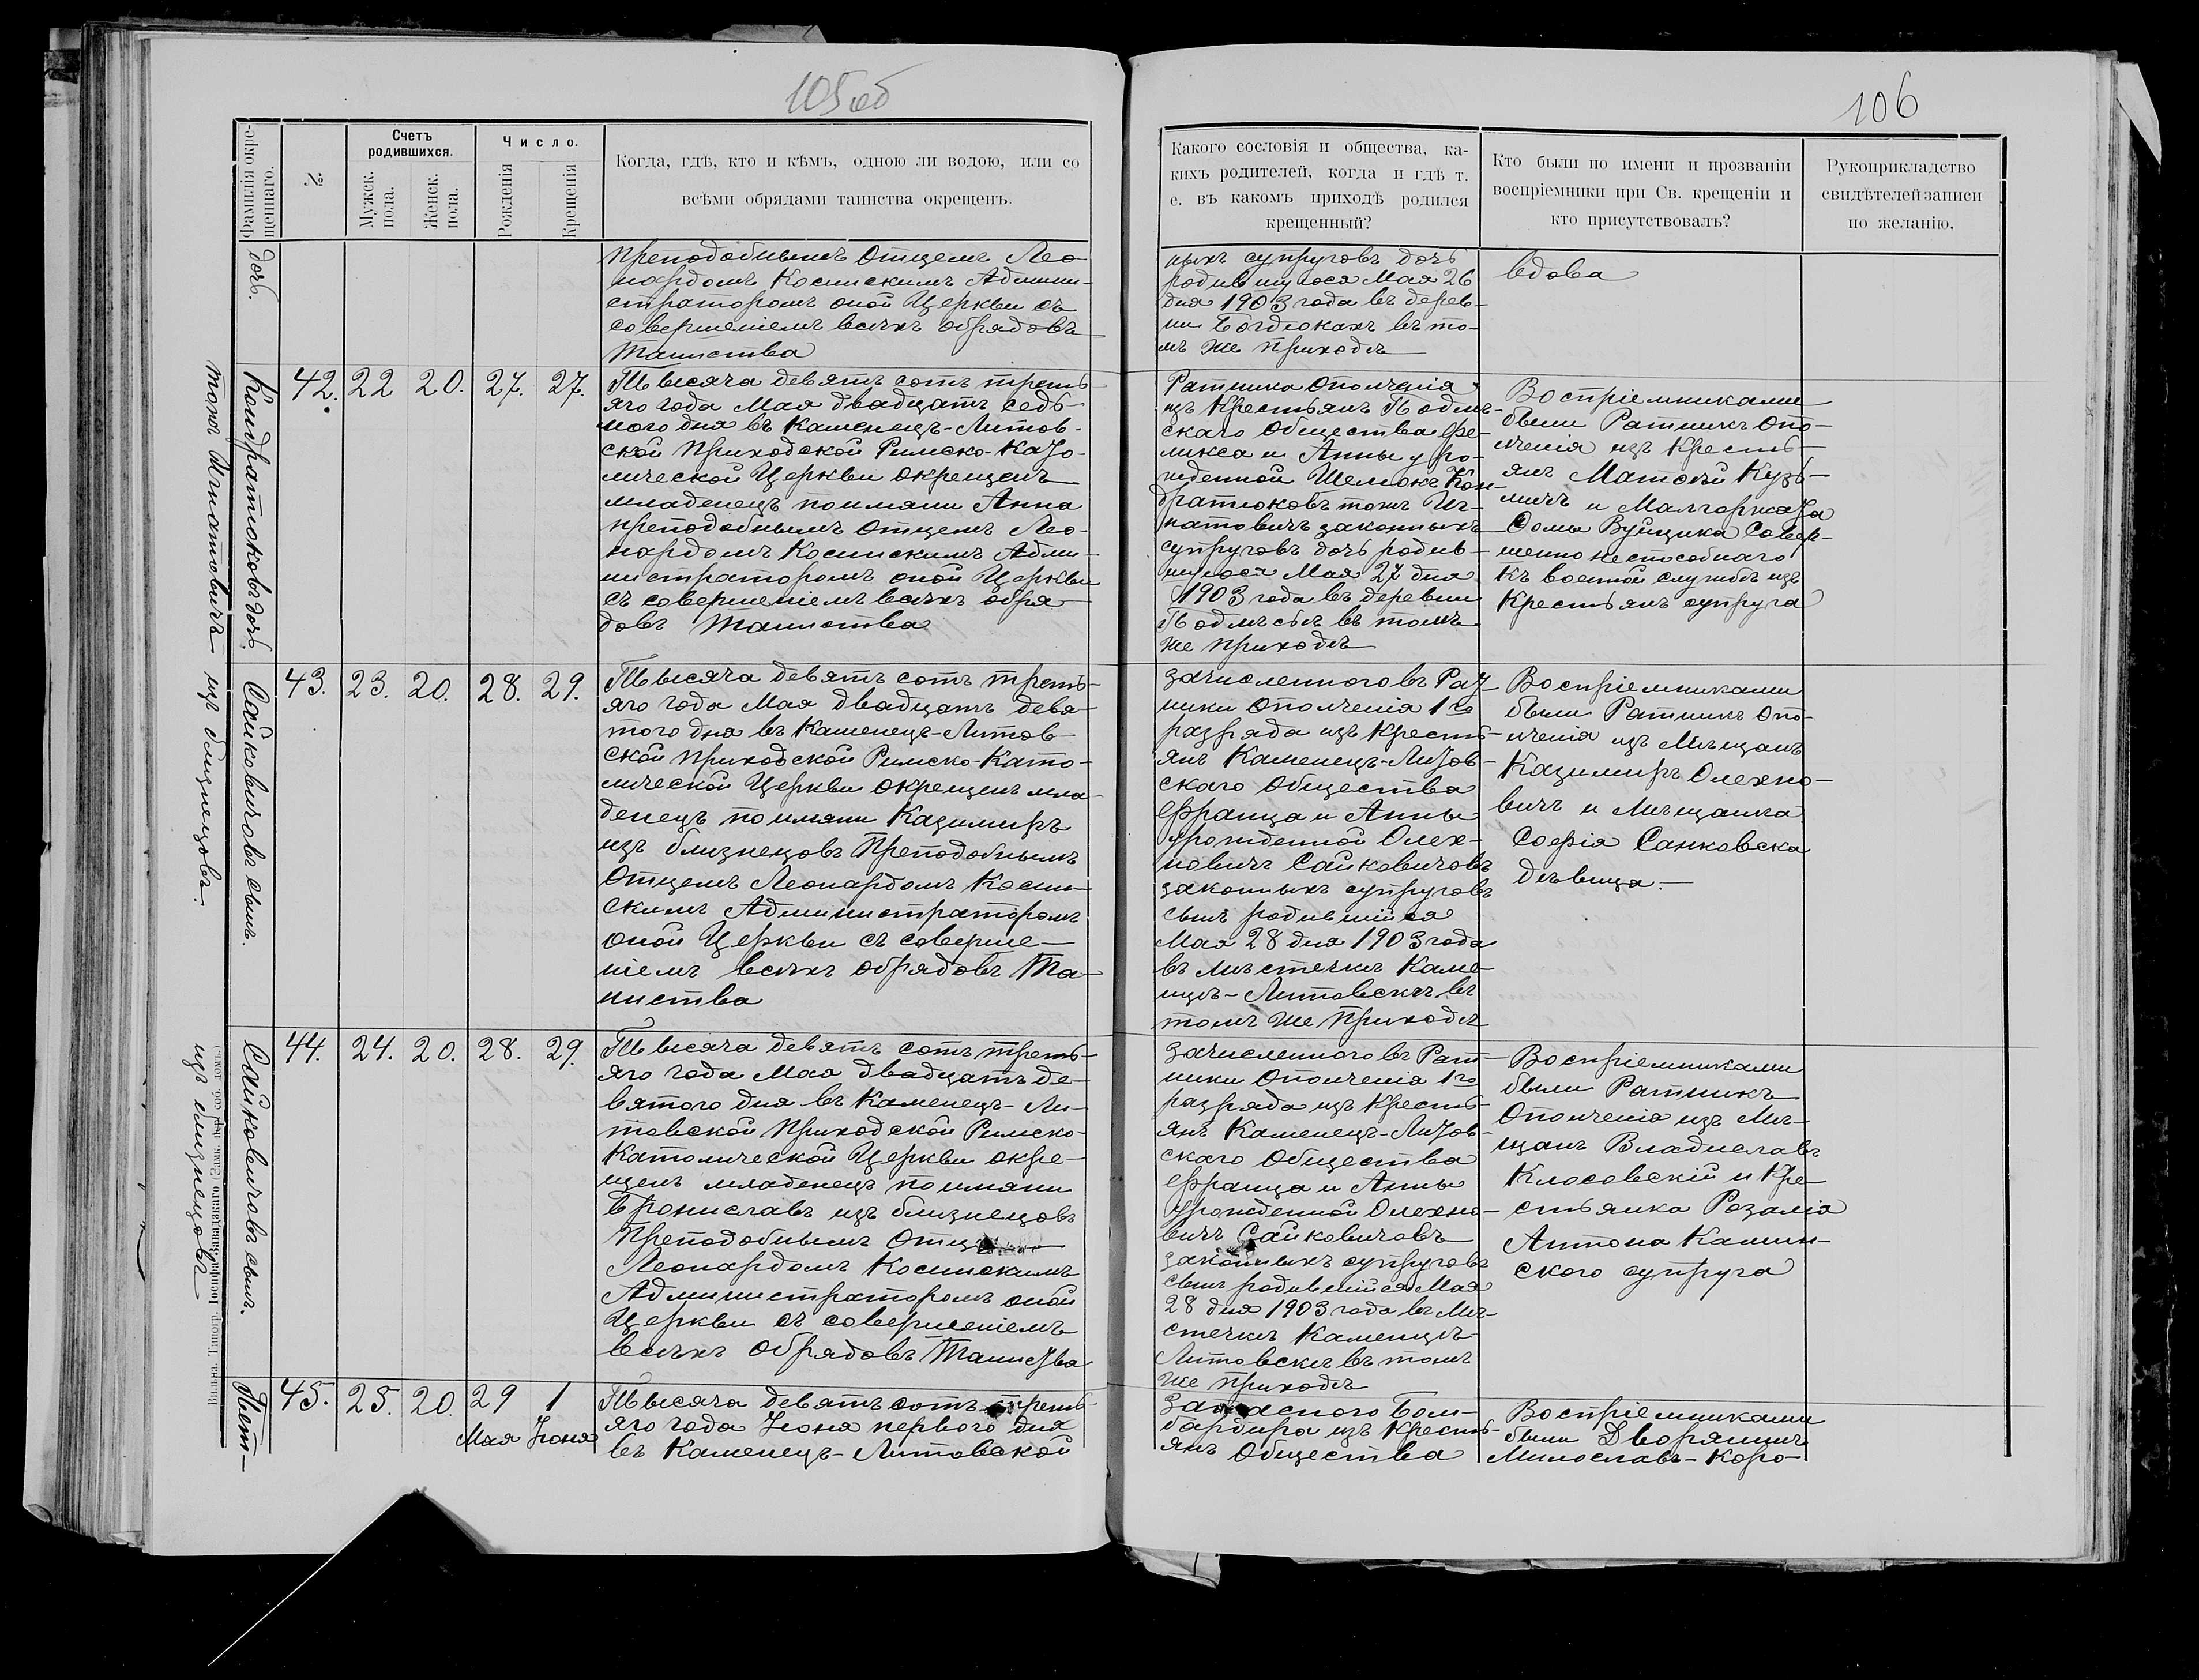 105 об
106
Фамилія окре-
щеннаго.
№
Счетъ
родившихся.
Мужск.
пола.
Женск.
пола.
Число.
Рожденія
Крещенія
Когда, гдѣ, кто и кѣмъ, одною ли водою, или со
всѣми обрядами таинства окрещенъ.
Какого сословія и общества, ка-
кихъ родителей, когда и гдѣ т.
е. въ какомъ приходѣ родился
крещенный?
Кто были по имени и прозванію
воспріемники при Св. крещеніи и
кто присутствовалъ?
Рукоприкладство
свидѣтелей записи
по желанію.
дочь.
Преподобнымъ Отцемъ Лео-
нардомъ Косинскимъ Админи-
страторомъ оной Церкви съ
совершеніемъ всѣхъ обрядовъ
Таинства
ныхъ супруговъ дочь
родившуюся Мая 26
дня 1903 года въ дерев-
ни Богдюкахъ въ то-
мъ же приходѣ
вдова
Кондратюковъ дочь.
тожъ Игнатовичъ
42. 22 20. 27. 27.
Тысяча девятъ сотъ треть-
яго года Мая двадцать седь-
мого дня въ Каменецъ-Литов-
ской Приходской Римско-Като-
лической Церкви окрещенъ
младенецъ поимяни Анна
преподобнымъ Отцемъ Лео-
нардомъ Косинскимъ Адми-
нистраторомъ оной Церкви
съ совершеніемъ всѣхъ обря-
довъ Таинства
Ратника Ополченія
изъ Крестьянъ Подлѣ-
скаго Общества Фе-
ликса и Анны уро-
жденной Шемюкъ Кон-
дратюковъ тожъ Иг-
натовичъ законныхъ
супруговъ дочь родив-
шуюся Мая 27 дня
1903 года въ деревни
Подлѣсьѣ въ томъ
же приходѣ
Воспріемниками
были Ратникъ Опо-
лченія изъ Кресть-
янъ Матеѵй Кузь-
мичъ и Малгоржата
Ѳомы Вуйцика Совер-
шенно неспособнаго
къ военной службѣ изъ
Крестьянъ супруга
Сайковичовъ сынъ.
изъ близнецовъ.
43. 23. 20. 28. 29.
Тысяча девятъ сотъ треть-
яго года Мая двадцать девя-
того дня въ Каменецъ-Литов-
ской приходской Римско-Като-
лической Церкви окрещенъ мла-
денецъ поимяни Казимиръ
изъ близнецовъ Преподобнымъ
Отцемъ Леонардомъ Косин-
скимъ Администраторомъ
оной Церкви съ соверше-
ніемъ всѣхъ обрядовъ Та-
инства
Зачисленного въ Рат-
ники Ополченія 1го
разряда изъ Кресть-
янъ Каменецъ-Литов-
скаго Общества
Франца и Анны
урожденной Олех-
новичъ Сайковичовъ
законныхъ супруговъ
сынъ родившійся
Мая 28 дня 1903 года
въ мѣстечкѣ Каме-
нцѣ-Литовскѣ въ
томъ же приходѣ
Воспріемниками
были Ратникъ Опо-
лченія изъ Мѣщанъ
Казимиръ Олехно-
вичъ и Мѣщанка
Софія Санковска
дѣвица.—
Сайковичовъ сынъ.
изъ близнецовъ
44. 24. 20. 28. 29.
Тысяча девятъ сотъ треть-
яго года Мая двадцать де-
вятого дня въ Каменецъ-Ли-
товской Приходской Римско-
Католической Церкви окре-
щенъ младенецъ поимяни
Брониславъ изъ близнецовъ
Преподобнымъ Отцемъ
Леонардомъ Косинскимъ
Администраторомъ оной
Церкви съ совершеніемъ
всѣхъ обрядовъ Таинства
Зачисленного въ Рат-
ники Ополченія 1го
разряда изъ Кресть-
янъ Каменецъ-Литов-
скаго Общества
Франца и Анны
урожденной Олехно-
вичъ Сайковичовъ
законныхъ супруговъ
сынъ родившійся Мая
28 дня 1903 года въ Мѣ-
стечкѣ Каменцѣ-
Литовскѣ въ томъ
же приходѣ
Воспріемниками
были Ратникъ
Ополченія изъ Мѣ-
щанъ Владиславъ
Клосовскій и Кре-
стьянка Розалія
Антона Камин-
ского супруга
Пет-
45. 25. 20. 29 1
Мая Іюня
Тысяча девятъ сотъ треть-
яго года Іюня перваго дня
въ Каменецъ-Литовской
Запасного Бом-
бардира изъ Кресть-
янъ Общества
Воспріемниками
были Дворянинъ
Милославъ-Коро-